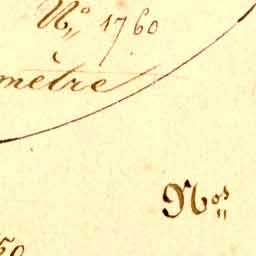 Nº 1760
mètre
Nos
50